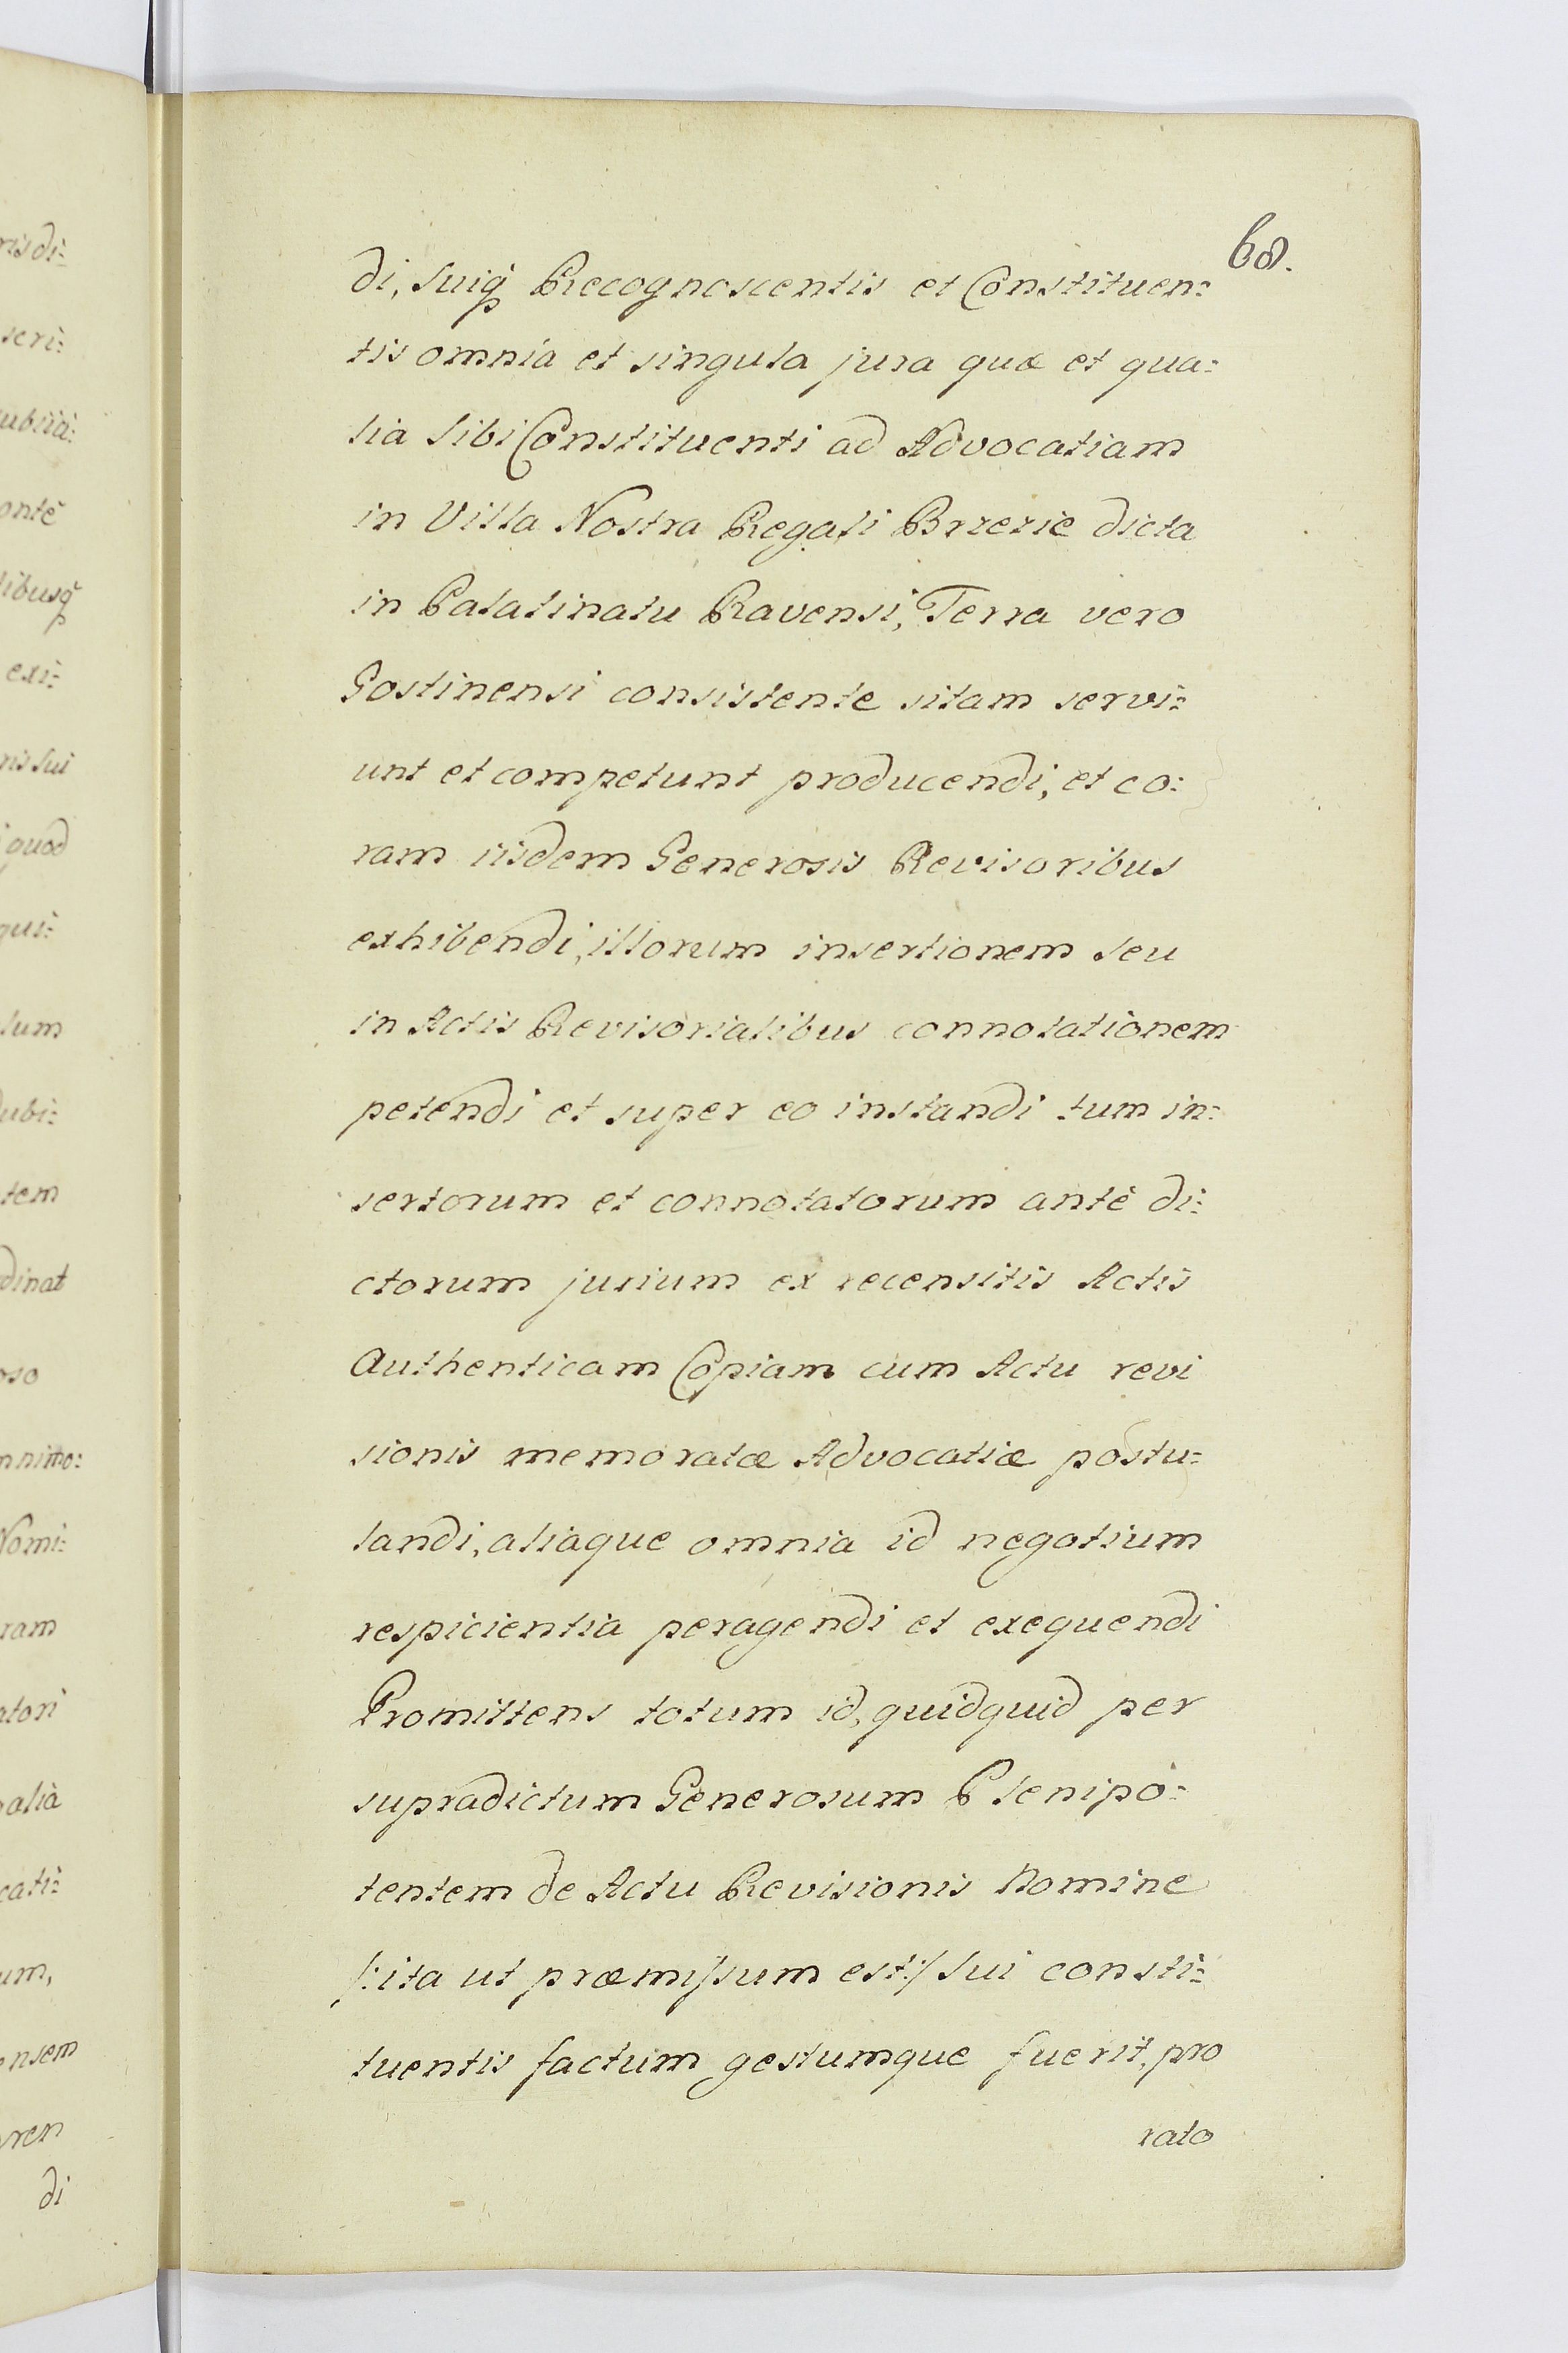 68.
di, Suiq̃ Recognoscentis et Constituen:
tis omnia et singula jura quæ et qua:
lia Sibi Constituenti ad Advocatiam
in Villa Nostra Regali Brzezie dicta
in Palatinatu Ravensi, Terra vero
Gostinensi consistente sitam servi:
unt et competunt producendi, et co:
ram iisdem Generosis Revisoribus
exhibendi, illorum insertionem seu
in Actis Revisorialibus connotationem
petendi et super eo instandi tum in:
sertorum et connotatorum antè di:
ctorum jurium ex recensitis Actis
Authenticam Copiam cum Actu revi
sionis memoratæ Advocatiæ postu:
landi, aliaque omnia id negotium
respicientia peragendi et exequendi
Promittens totum id, quidquid per
supradictum Generosum Plenipo:
tentem de Actu Revisionis Nomine
/: ita ut præmissum est :/ Sui consti:
tuentis factum gestumque fuerit, pro
rato
risdi:
seri:
ubsia:
ontè
libusq̃
exi:
nis Sui
quod
qui:
lum
dubi:
tem
dinat
oso
nnimo:
Nomi:
ram
atori
alià
cati:
um,
ensem
ren
di